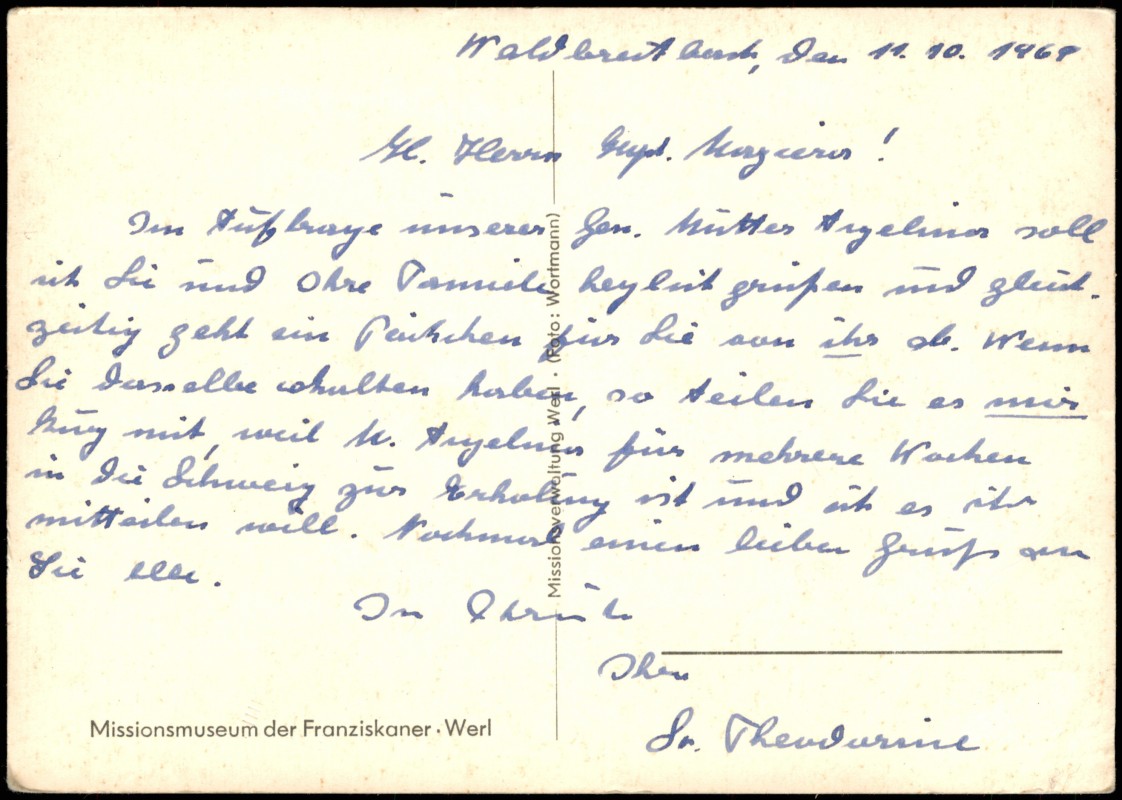 Waldbreitbach, den 11. 10. 1969
Herrn
Im Auftrage unserer Gen. Mutter Angelina soll
ich Sie und Ihre Familie herzlich grüßen und gleich-
zeitig geht ein Päckchen für Sie von ihr ab. Wenn
Sie dasselbe erhalten haben, so teilen Sie es mir
kurz mit, weil M. Angelina für mehrere Wochen
in die Schweiz zur Erholung ist und ich es ihr
mitteilen will. Nochmal einen lieben Gruß an
Sie alle.
In Christo
Ihre
Sr. Theodorine
Missionsmuseum der Franziskaner · Werl
Missionsverwaltung Werl · (Foto: Wortmann)